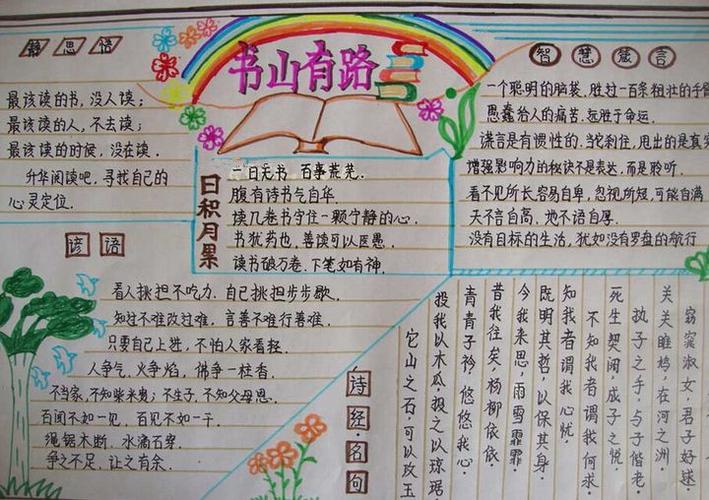 书山有路
静思语
最该读的书,没人读;
最该读的人,不去读;
最该读的时候,没在读.
升华阅读吧,寻找自己的
心灵定位.
智慧箴言
一个聪明的脑袋,胜过一百条粗壮的手臂
愚蠢给人的痛苦,远胜于命运.
谎言是有惯性的.当刹住,甩出的是真实
增强影响力的秘诀不是表达,而是聆听.
看不见所长容易自卑,忽视所短,可能自满
天不言自高,地不语自厚.
没有目标的生活,犹如没有罗盘的航行
日积月累
一日无书 百事荒芜.
腹有诗书气自华
读几卷书守住一颗宁静的心.
书犹药也,善读可以医愚.
读书破万卷.下笔如有神.
谚语
看人挑担不吃力.自己挑担步步歇.
知过不难改过难,言善不难行善难.
只要自己上进,不怕人家看轻.
人争气,火争焰,佛争一柱香.
不当家,不知柴米贵;不生子,不知父母恩.
百闻不如一见,百见不如一干.
绳锯木断.水滴石穿.
争之不足,让之有余.
诗经·名句
窈窕淑女,君子好逑
关关雎鸠,在河之洲.
执子之手,与子偕老
死生契阔,成子之悦.
不知我者谓我何求
知我者谓我心忧,
既明其哲,以保其身.
今我来思,雨雪霏霏
昔我往矣,杨柳依依.
青青子衿,悠悠我心.
投我以木瓜,报之以琼琚.
它山之石,可以攻玉